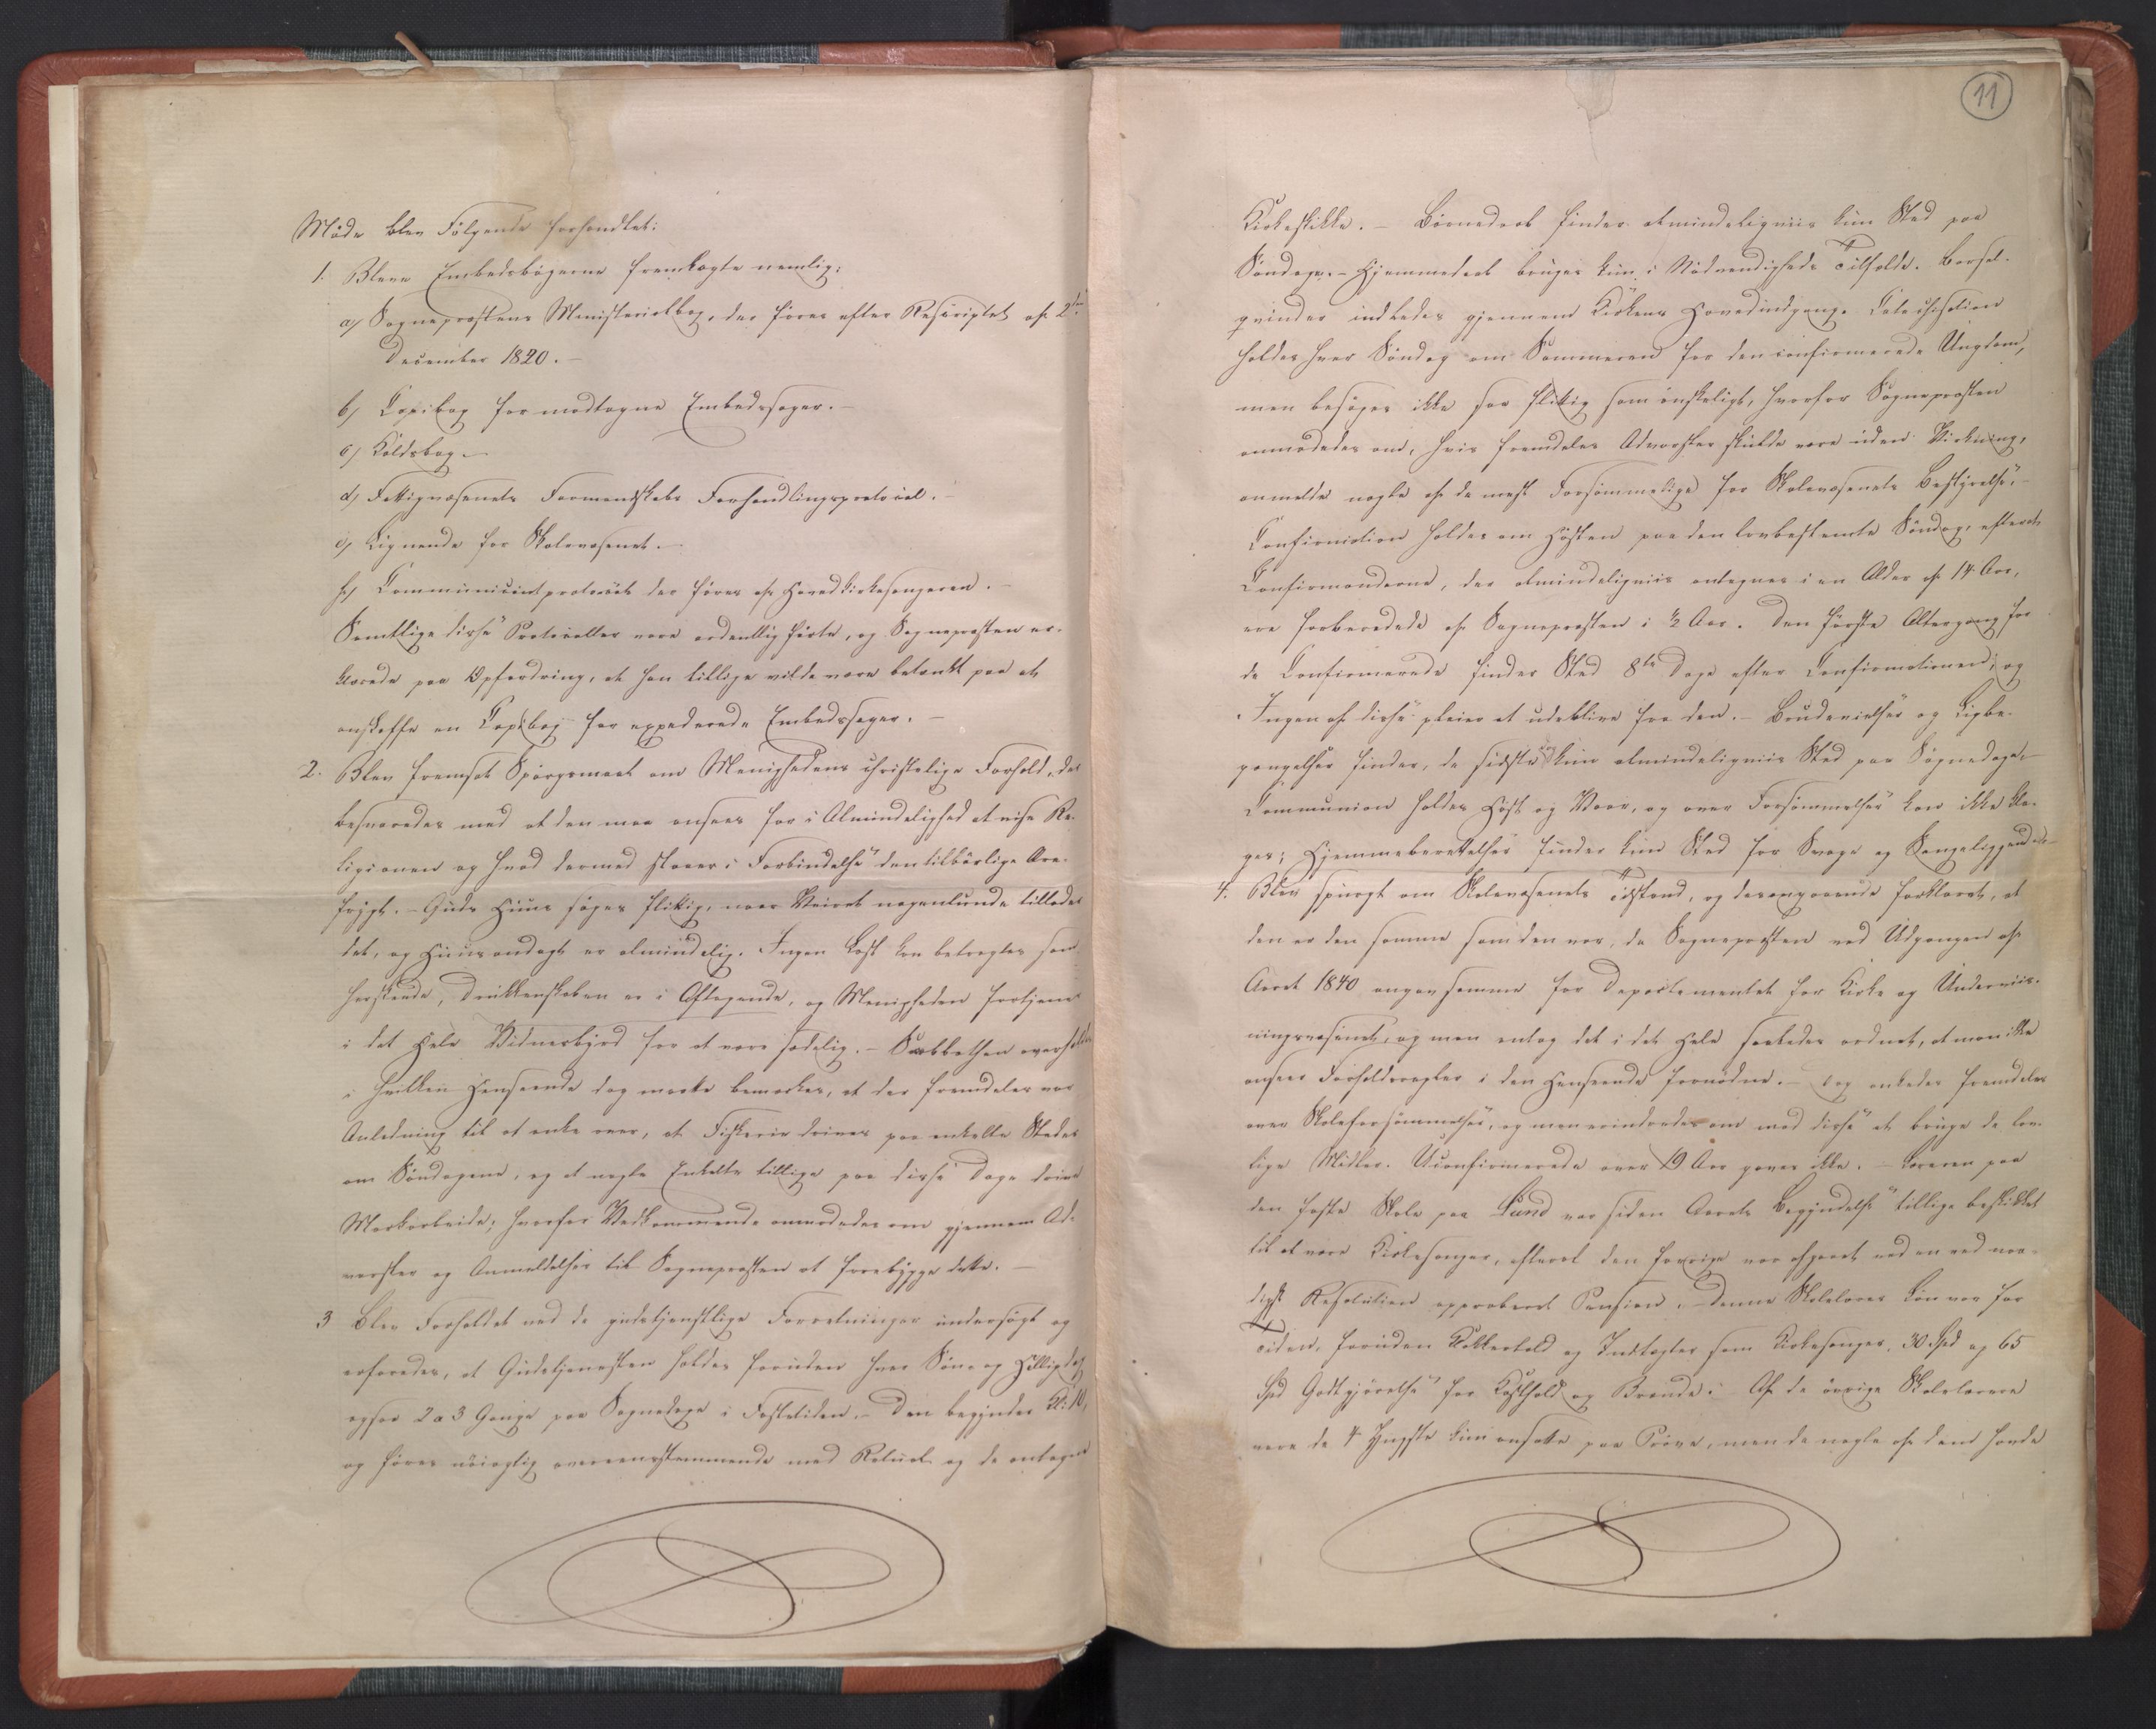 Møde blev Følgende forhandlet:
1. Bleve Embedsbøgerne fremlagte nemlig:
a) Sognepræstens Ministerialbog, der føres efter Rescriptet af 2den
December 1820. –
b) Copibog for modtagne Embedssager. –
c) Kaldsbog. –
d) Fattigvæsenets Formandskabs Forhandlingsprotocol. –
e) Lignende for Skolevæsenet. –
f) Communicantprotocol der føres af Hovedkirkesangeren. –
Samtlige disse Protocoller vare ordentlig førte, og Sognepræsten er-
klærede paa Opfordring, at han tillige vilde være betænkt paa at
anskaffe en Copibog for expederede Embedssager. –
2. Blev fremsat Spørgsmaal om Menighedens christelige Forhold, der
besvaredes med at den maa ansees for i Almindelighed at vise Re-
ligionen og hvad dermed staaer i Forbindelse den tilbørlige Ære-
frygt. – Guds Huus søges flittig, naar Veiret nogenlunde tillader
det, og Huusandagt er almindelig. Ingen Last kan betragtes som
herskende, Drukkenskaben er i Aftagende, og Menigheden fortjener
i det Hele Vidnesbyrd for at være sædelig. – Sabbathen overholdes
i hvilken Henseende dog maatte bemærkes, at der fremdeles var
Anledning til at anke over, at Fiskerie drives paa enkelte Steder
om Søndagene, og at nogle Enkelte tillige paa disse Dage drive
Markarbeide; hvorfor Vedkommende anmodedes om gjennem Ad-
varsler og Anmeldelser til Sognepræsten at forebygge dette. –
3 Blev Forholdet ved de gudstjenstlige Forretninger undersøgt og
erfaredes, at Gudstjenesten holdes foruden hver Søn- og Helligdag
ogsaa 2 a 3 Gange paa Søgnedage i Fastetiden. – Den begynder Kl: 10,
og føres nøiagtig overeensstemmende med Ritual og de antagne
11
Kirkeskikke. – Børnedaab finder almindeligviis kun Sted paa
Søndage. – Hjemmedaab bruges kun i Nødvendigheds Tilfælde. Barsel-
qvinder indledes gjennem Kirkens Hovedindgang. Catechisation
holdes hver Søndag om Sommeren for den confirmerede Ungdom,
men besøges ikke saa flittig som ønskeligt, hvorfor Sognepræsten
anmodedes om, hvis fremdeles Advarsler skulde være uden Virkning,
anmelde nogle af de mest Forsømmelige for Skolevæsenets Bestyrelse, –
Confirmation holdes om Høsten paa den lovbestemte Søndag, efterat
Confirmanderne, der almindeligviis antegnes i en Alder af 14 Aar,
ere forberedede af Sognepræsten i ½ Aar. Den første Altergang for
de Confirmerede finder Sted 8te Dage efter Confirmationen, og
Ingen af disse pleier at udeblive fra den. – Brudevielser og Ligbe-
gjængelser finder, de sidste dog kun almindeligviis Sted paa Søgnedage, –
Communion holdes Høst og Vaar, og over Forsømmelser kan ikke kla-
ges; Hjemmeberettelser finder kun Sted for Svage og Sengeliggende. –
4. Blev spurgt om Skolevæsenets Tilstand, og desangaaende forklaret, at
den er den samme som den var, da Sognepræsten ved Udgangen af
Aaret 1840 angav samme for Departementet for Kirke og Underviis-
ningsvæsenet, og man antog det i det Hele saaledes ordnet, at man ikke
ansaae Forholdsregler i den Henseende fornødne. – Dog ankedes fremdeles
over Skoleforsømmelser, og man erindredes om mod disse at bruge de lov-
lige Midler. Uconfirmerede over 19 Aar gaves ikke. – Læreren paa
den faste Skole paa Lund var siden Aarets Begyndelse tillige beskikket
til at være Kirkesanger, efterat den forrige var afgaaet ved en ved naa-
digst Resolution approberet Pension. – Denne Skolelærer Løn var for
Tiden, foruden Klokkertold og Indtægter som Kirkesanger, 30 Spd og 65
Spd Godtgjørelse for Kosthold og Brænde. Af de øvrige Skolelærere
vare de 4 Yngste kun ansatte paa Prøve, men da nogle af dem havde